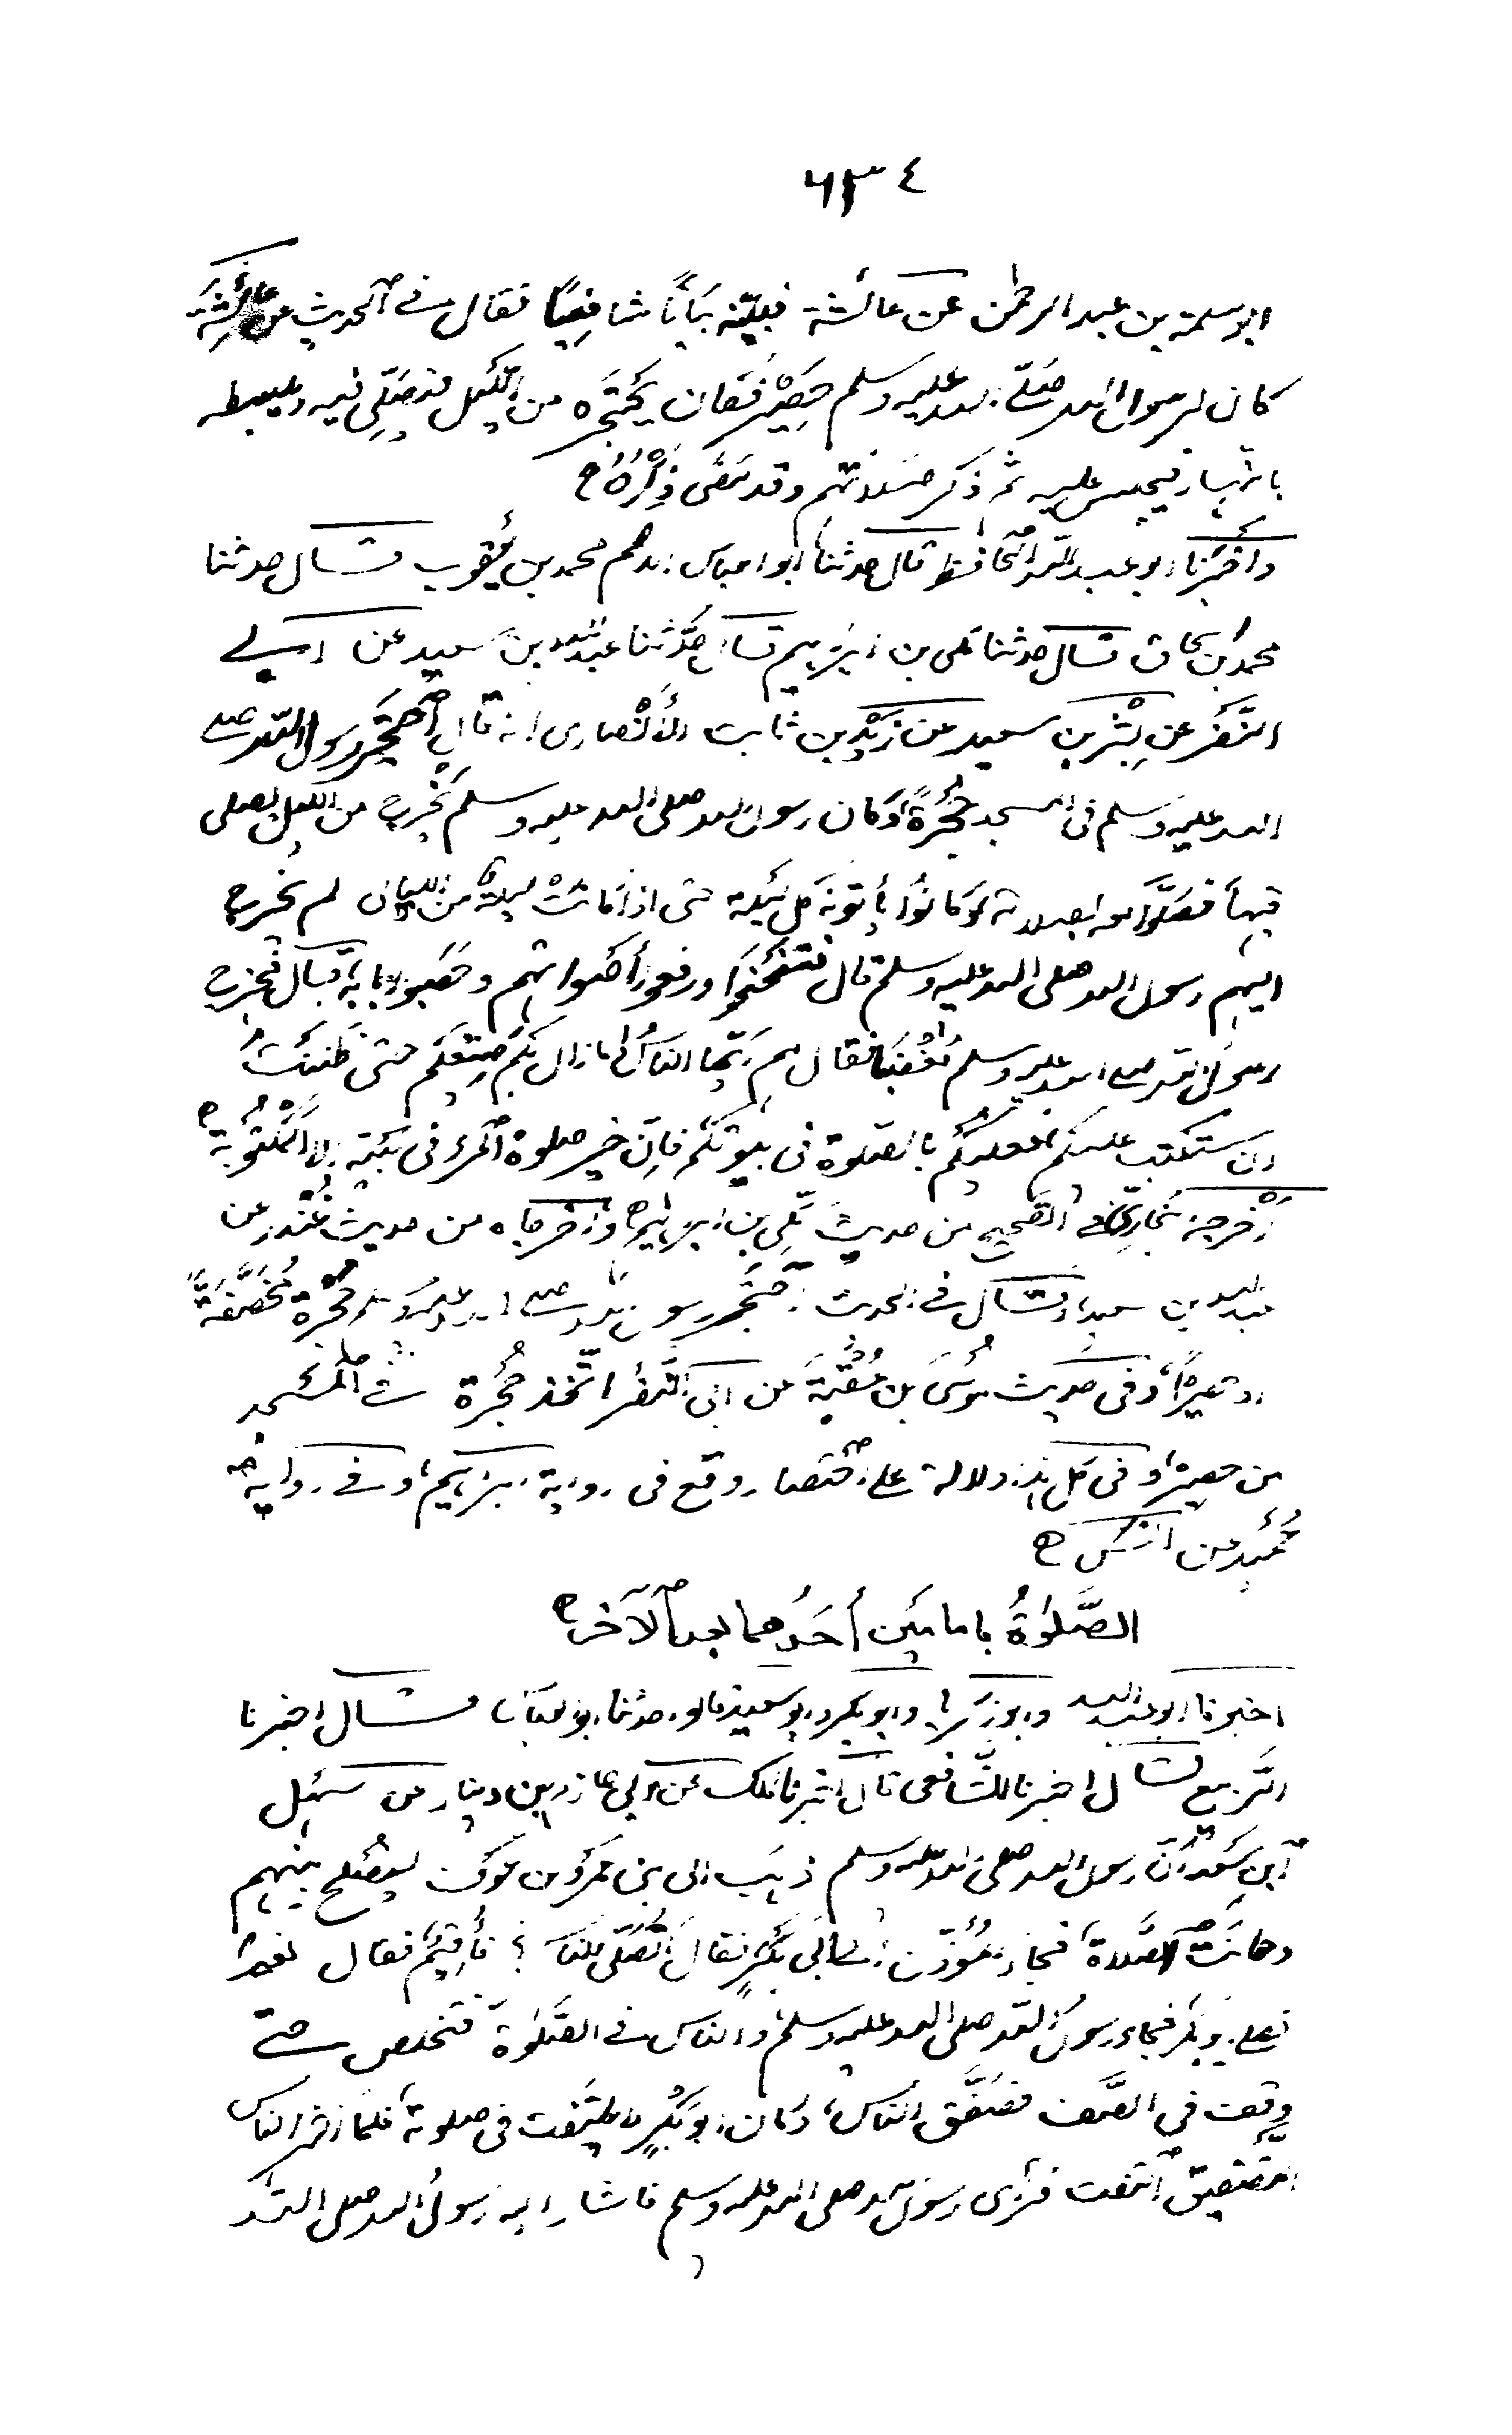 ٦٣٤
ابو سلمة بن عبد الرحمٰن عن عائشة فبيّنه بَيَانًا شافِيًا فقال فى الحديث عن عائِشَة
كان لرسول الله صلّى الله عليه وسلم حَصِيْر فَكان يَحْتَجِره من اللّيل فيصَلِّى فيه ويبسطه
بالنهار فيجلس عليه ثم ذكر صَلاتهم وقد مَضَى ذِكْرُهُ
واخبَرنا ابو عبد الله الحَافظ قال حدثنا ابو العباس الاصم محمد بن يَعْقوب قال حدثنا
محمد بن اسحاق قال حدثنا مكى بن ابراهيم قال حدّثنا عبد الله بن سعيد عن ابى
النَّضر عن بِسْر بن سعيد عن زَيْد بن ثابت الأنْصارى انه قال احتجر رسول الله صلى
الله عليه وسلم فى المسجد حُجْرَةً وكان رسول الله صلى الله عليه وسلم يَخْرج من الليل يصلى
فيها فصَلَّوا معه لصلاته وكانُوا يأتونه كل لَيلة حتى اذا كانَتْ ليلة من الليالى لم يخرج
اليهم رسول الله صلى الله عليه وسلم قال فتنحْنَحُوا ورفعوا أصْواتهم وحَصَبوا بابه قال فخرج
رسول الله صلى الله عليه وسلم مُغْضَبًا فقال لهم ايّها الناسُ ما زال بكُم صنِيعكم حتى ظَننتُ
ان ستكتب عليكم فعلَيكُم بالصّلوة فى بيوتكم فانّ خير صلوة المرء فى بَيته الا المكْتوبة
اخْرجه البخارى فى الصّحيح من حديث مكّى بن ابراهيم واخرجاه من حديث غُنْدر عن
عبد الله بن سعيد وقال فى الحديث احتجر رسول الله صلى الله عليه وسلم حُجْرة مُخَصَّفَةً
او حَصِيرًا وفى حديث مُوسَى بن عُقْبَة عن ابى النَّضر اتّخذ حُجْرة فى المسْجد
من حصير وفى كل هذا دلالة على اختصار وقع فى رواية ابراهيم وفى رواية
حُمَيْد عن انَس
الصَّلٰوةُ بامامَين أَحَدُهما بعد الآخر
اخبرنا ابو عبد الله وابو زكريا وابو بكر وابو سعيد قالوا حدثنا ابو العباس قال اخبرنا
الرّبيع قال اخبرنا الشّافعى قال اخبرنا ملك عن ابى حازم بن دينار عن سَهْل
ابن سَعْد أنّ رسول الله صلى الله عليه وسلم ذهَب الى بنى عَمرو بن عَوف ليصْلح بينهم
وحانَت الصَّلاة فجاء المؤذّن الى ابى بَكرٍ فقالَ أتُصَلّى للناس ؟ فأُقيم فقال نعم
فصلى ابو بكر فجاء رسول الله صلى الله عليه وسلم والناس فى الصَّلوة فتخلص حتى
وقف في الصَّف فصَفَّق الناس وكان ابو بَكرٍ لا يلتَفت فى صلوته فلما اكثر الناس
التَّصفيق التَفت فرأى رسول الله صلى الله عليه وسلم فاشار اليه رَسولُ الله صلى الله